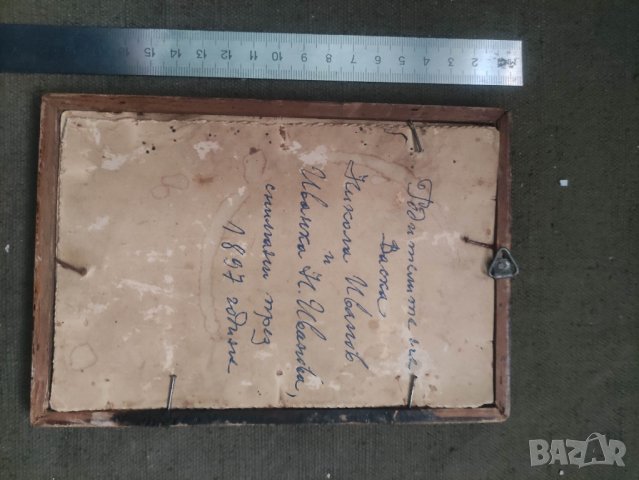 Родителите ми
Васка
Никола Иванов
и
Иванка Н. Иванова,
снимани през
1897 година
15 14 13 12 11 10 9 8 7 6 5 4 3 2
BAZAR